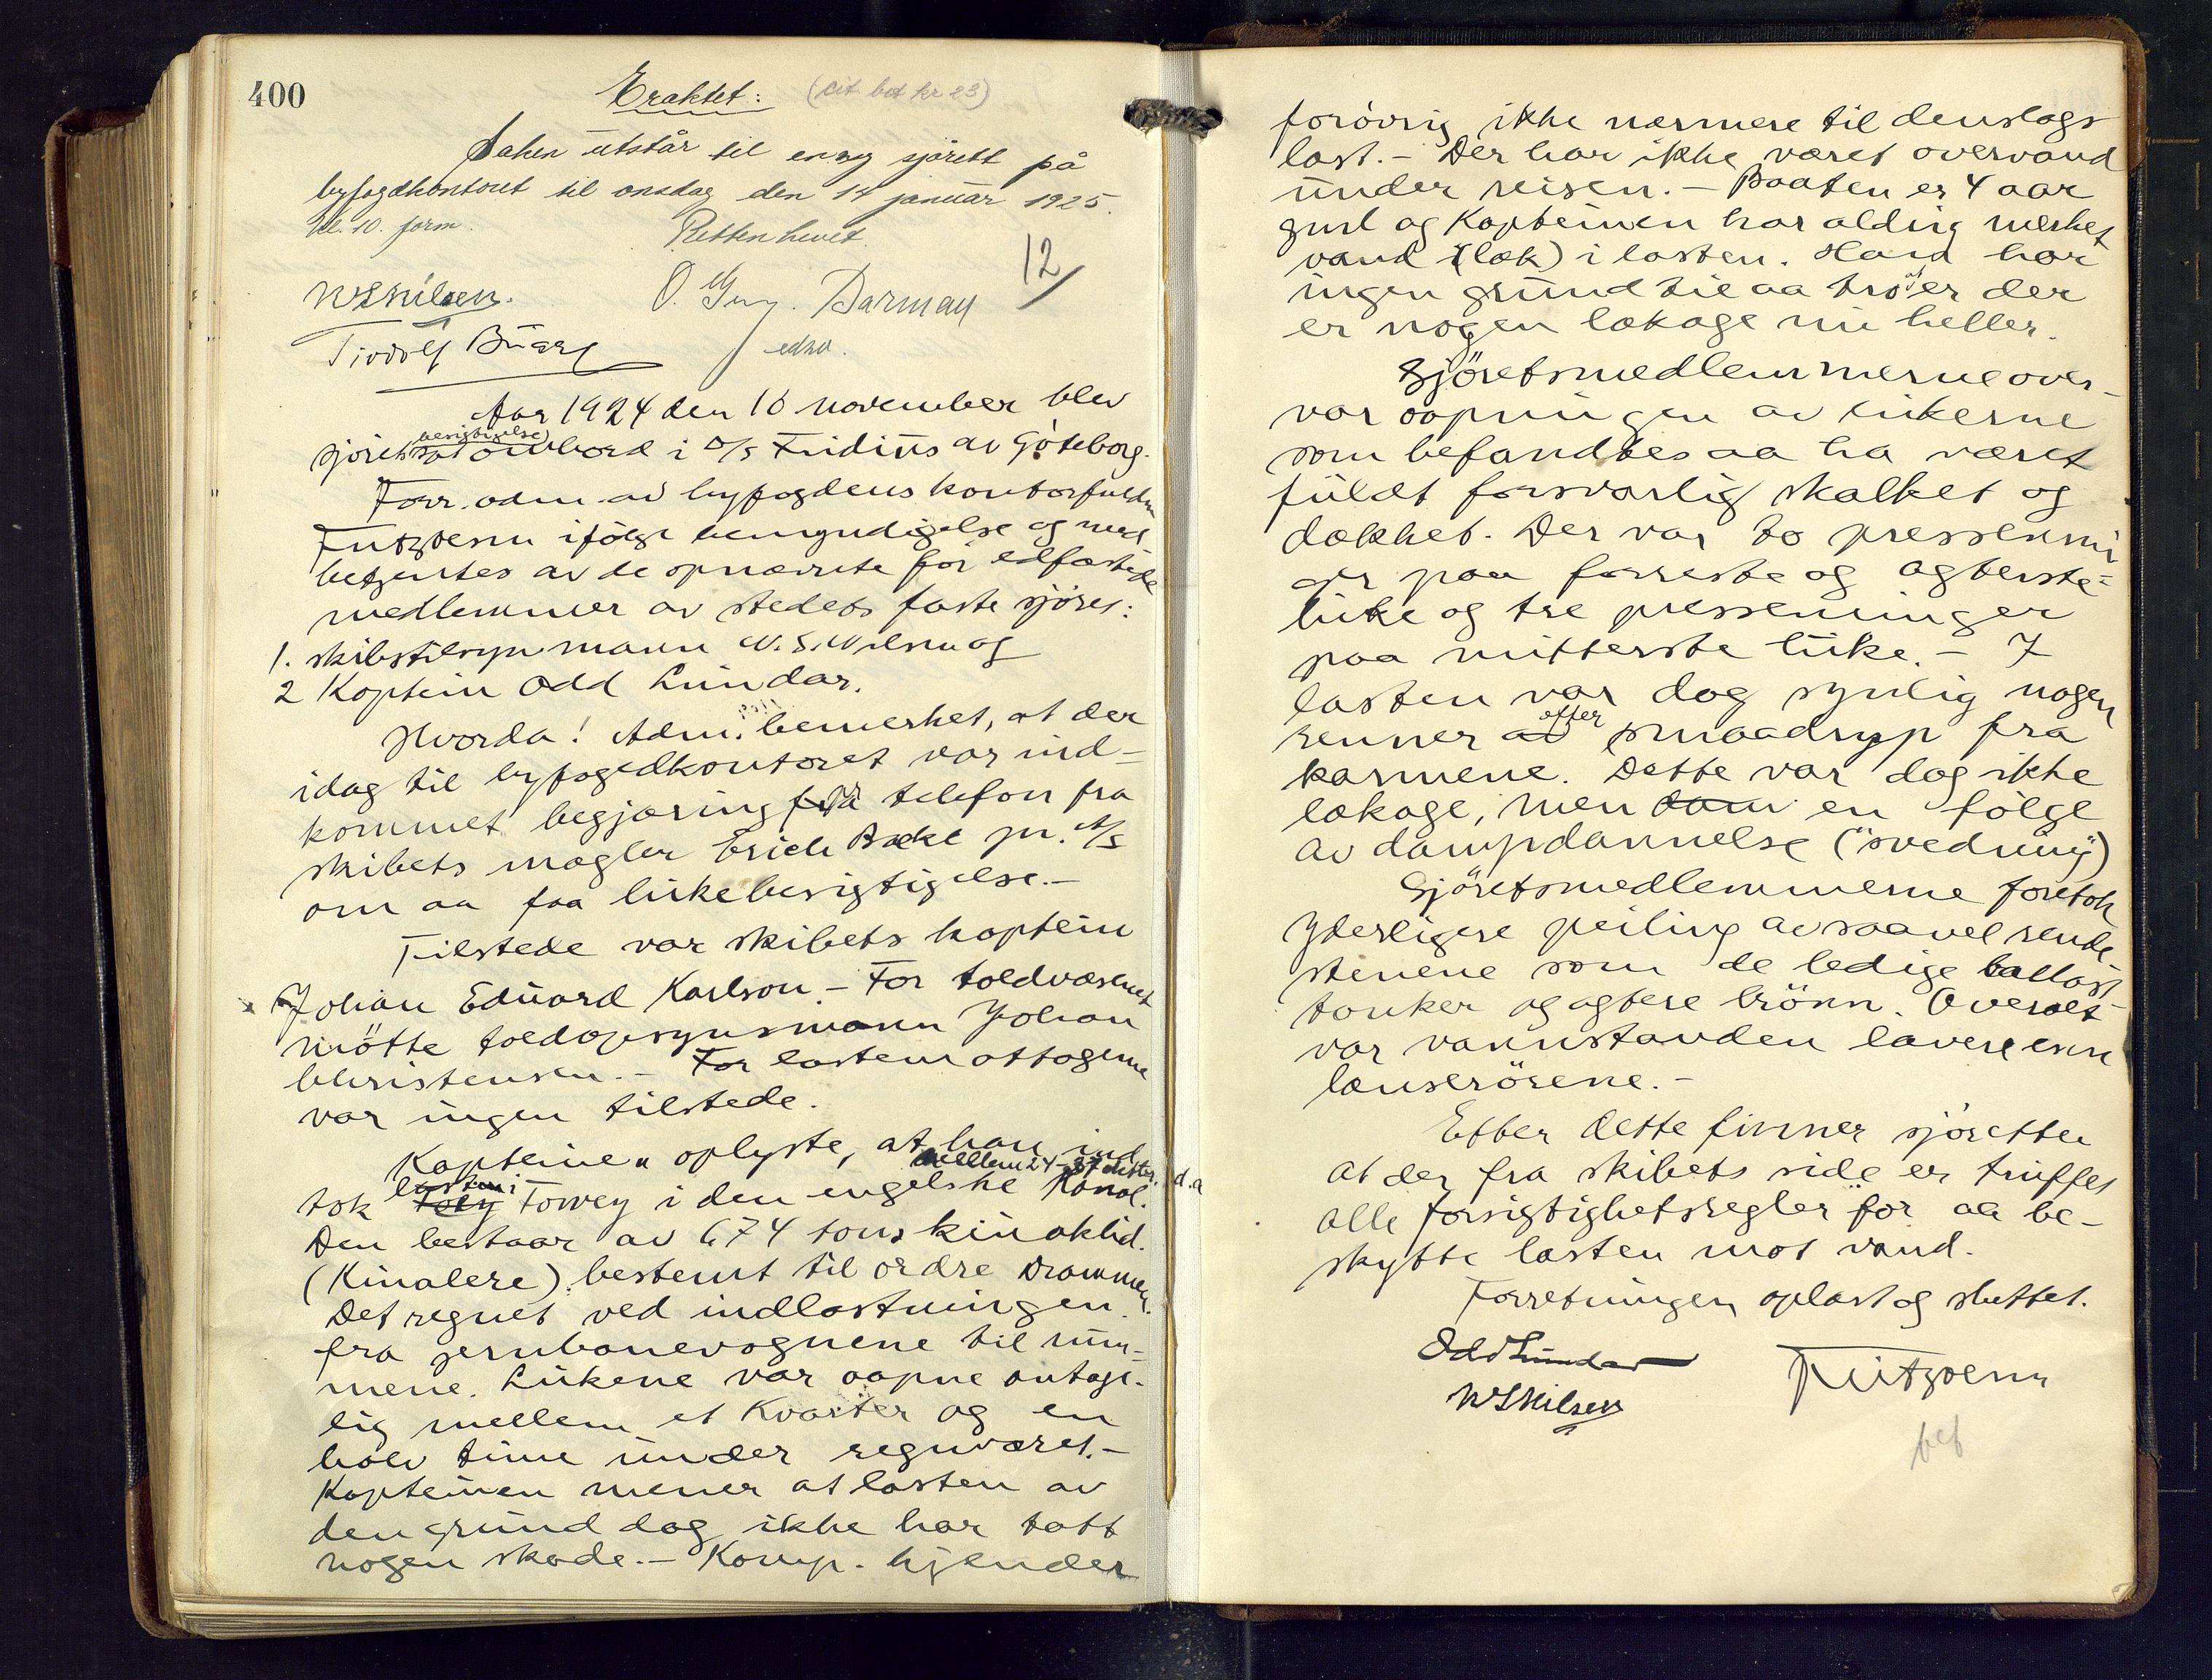 400
Eraktet: (cit bet kr 23)
Saken utstår til en ny sjörett på
byfogdkontoret til onsdag den 14 januar 1925.
kl. 10. form. Retten hevet.
12/
N S Nilsen. O. Darman
Tjodolf edsv.
Aar 1924 den 10 november blev
sjörets besigtigelse sat ombord i D/S Fridius av Göteborg.
Forr. adm. av byfogdens kontorfuldm
ifölge bemyndigelse og med
betjentes av de opnævnte för edfæstede
medlemmer av stedets faste sjöret:
1. skibstilsynsmann N. S. Nilsen og
2 Kaptein Odd Lundar.
Hvorda! Adm. bemerket, at der
idag til byfogedkontoret var ind-
kommet begjæring pr telefon fra
skibets mægler Erich Bache jr. A/S
om aa faa lukebesigtigelse.-
Tilstede var skibets kaptein
Johan Eduard Karlson.- For toldvæsenet
mötte toldopsynsmann Johan
Christensen.- For lastemottagerne
var ingen tilstede.
Kapteinen oplyste, at han ind
tok lasten i Fowey i den engelske Kanal. mellem 24-27 d.a
Den bestaar av 674 tons kinaklid.
(Kinalere) bestemt til ordre Drammen.
Det regnet ved indlastningen
fra jernbanevognene til rum-
mene. Lukene var aapne antage-
lig mellem et Kvarter og en
halv time under regnværet.-
Kapteinen mener at lasten av
den grund dog ikke har tatt
nogen skade.- Komp. kjender
forövrig ikke nærmere til denslags
last.- Der har ikke været overvand
under reisen.- Baaten er 4 aar
gml og Kapteinen har aldrig merket
vand (læk) i lasten. Han har
ingen grund til aa tro at der
er nogen lækage nu heller.
Sjöretsmedlemmerne over-
var aapningen av lukerne
som befandtes aa ha været
fuldt forsvarlig skalket og
dækket. Der var to pressennin
ger paa forreste og agterste-
luke og tre pressenninger
paa mitterste luke.- I
lasten var dog synlig nogen
renner efter smaadryp fra
karmene. Dette var dog ikke
lækage, men en fölge
av dampdannelse ("svedning")
Sjöretsmedlemmerne foretok
yderligere peiling av saavel rende
stenene som de ledige ballast
tanker og agtere brönn. Overalt
var vannstanden lavere enn
lænserörene.-
Etter dette finner sjöretten
at der fra skibets side er truffet
alle forsigtighetsregler för aa be-
skytte lasten mot vand.
Forretningen oplæst og sluttet.
Odd Lundar
N S Nilsen
bef